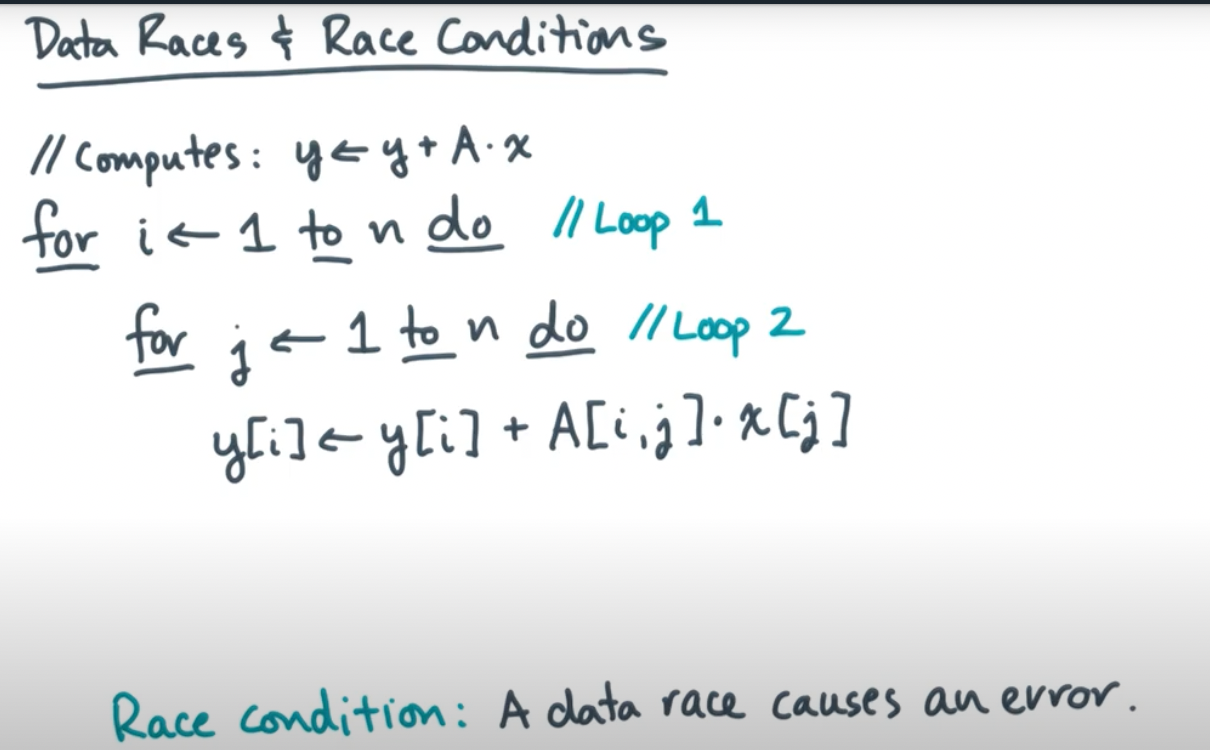 Data Races & Race Conditions
// Computes: y ← y + A · x
for i ← 1 to n do // Loop 1
for j ← 1 to n do // Loop 2
y[i] ← y[i] + A[i,j] · x[j]
Race condition: A data race causes an error.